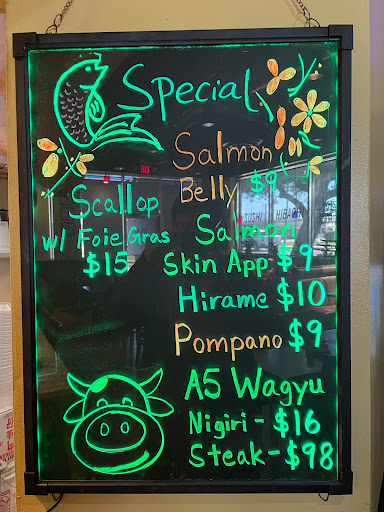 Special
Salmon
Belly $9
Scallop
w/ Foie Gras
$15
Salmon
Skin App $9
Hirame $10
Pompano $9
A5 Wagyu
Nigiri - $16
Steak - $98